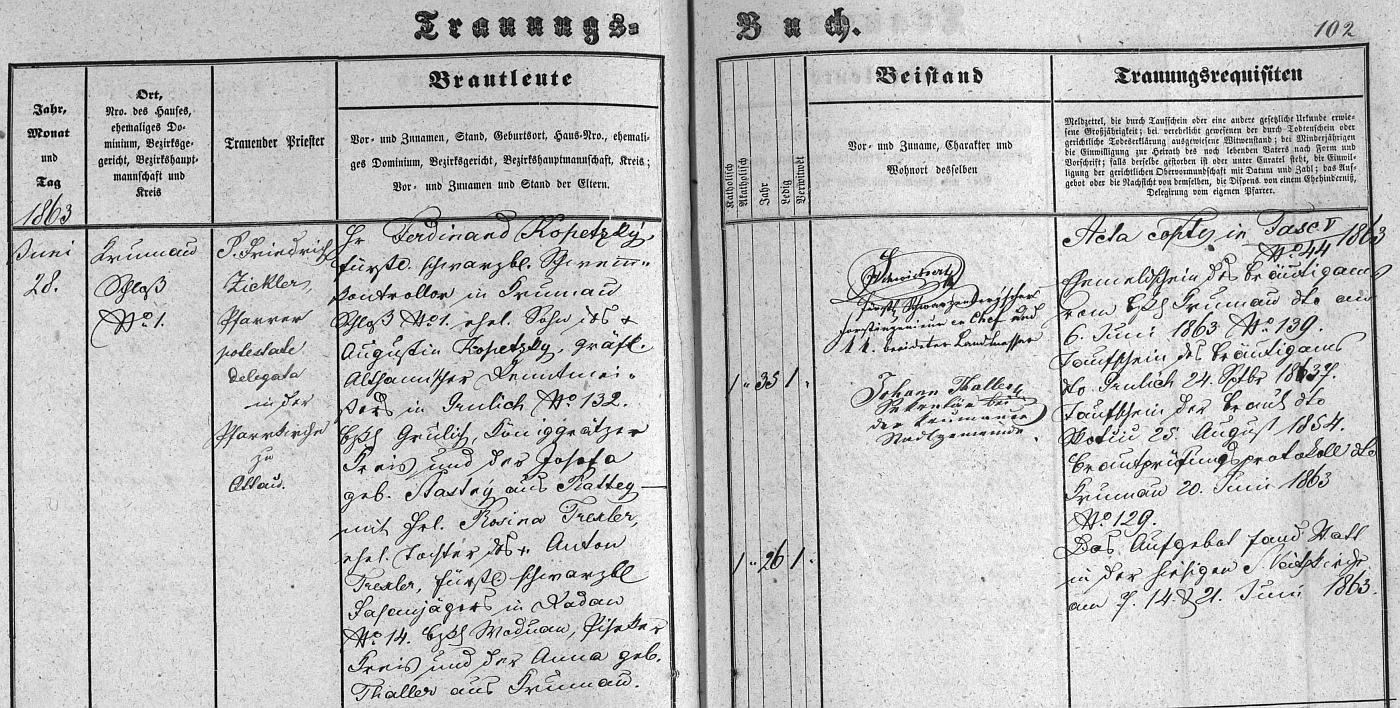 Trauungs-
Buch.
102
Jahr,
Monat
und
Tag
Ort,
Nro. des Hauses,
ehemaliges Do-
minium, Bezirksge-
gericht, Bezirkshaupt-
mannschaft und
Kreis
Trauender Priester
Brautleute
Vor- und Zunamen, Stand, Geburtsort, Haus-Nro., ehemali-
ges Dominium, Bezirksgericht, Bezirkshauptmannschaft, Kreis;
Vor- und Zunamen und Stand der Eltern.
Katholisch
Akatholisch
Jahr
Ledig
Verwitwet
Beistand
Vor- und Zuname, Charakter und
Wohnort desselben
Trauungsrequisiten
Meldzettel, die durch Taufschein oder eine andere gesetzliche Urkunde erwie-
sene Großjährigkeit; bei verehelicht gewesenen der durch Todtenschein oder
gerichtliche Todeserklärung ausgewiesene Witwenstand; bei Minderjährigen
die Einwilligung zur Heirath des noch lebenden Vaters nach Form und
Vorschrift; falls derselbe gestorben ist oder unter Curatel steht, die Einwil-
ligung der gerichtlichen Obervormundschaft mit Datum und Zahl; das Auf-
gebot oder die Nachsicht von demselben, die Dispens von einem Ehehinderniß,
Delegirung vom eigenen Pfarrer.
1863
Juni
28.
Krumau
Schloß
No 1.
P. Friedrich
Zickler,
Pfarrer
potestate
delegata
in der
Pfarrkirche
zu
Ottau.
Hr Ferdinand Kopetzky,
fürstl. schwarzbl. Schwemm-
kontrollor in Krumau
Schloß No 1. ehel. Sohn des +
Augustin Kopetzky, gräfl.
Althanischer Rentmei-
sters in Grulich No 132.
Bzk Grulich, Königgrätzer
Kreis und der Josefa
geb. Stastny aus Rattey
mit Frl. Rosina Trexler,
ehel. Tochter des + Anton
Trexler, fürstl schwarzbl
Fasanjägers in Radan
No 14. Bzk Woduan, Piseker
Kreis und der Anna geb.
Thaller aus Krumau.
1 " 35 1 "
1 " 26 1 "
Fürstl. Schwarzenberg'scher
Forstingenieur en Chef und
k. k. beeideter Landmesser
Johann Thaller
Sekretär bei
der Krumauer
Stadtgemeinde.
Acta copta in Fasc V
No 44 1863
Meldschein des Bräutigams
vom Bzk Krumau dto am
6. Juni 1863 No 139.
Taufschein des Bräutigams
dto Grulich 24. Sptbr
Taufschein der Braut dto
25. August 1854.
Brautprüfungsprotokoll dto
Krumau 20. Juni 1863
No 129.
Das Aufgebot fand statt
in der hiesigen
am 7. 14. & 21. Juni 1863.